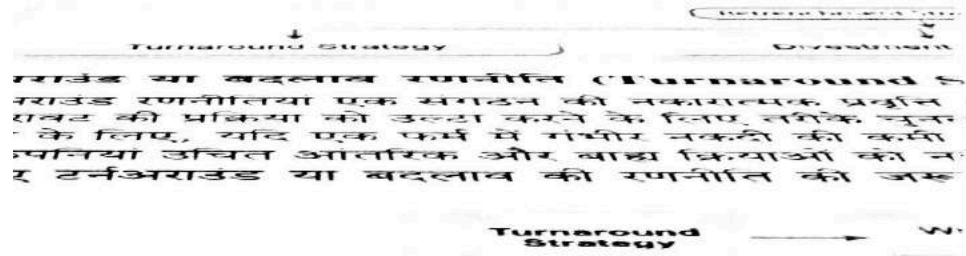 Turnaround Strategy
Divestment
या बदलाव रणनीति (Turnaround S
रणनीतियां एक संगठन की नकारात्मक प्रवृत्ति
की प्रक्रिया को उल्टा करने के लिए तरीके
के लिए, यदि एक फर्म में गंभीर नकदी की कमी
उचित आंतरिक और बाह्य क्रियाओं को न
टर्नअराउंड या बदलाव की रणनीति की जरू
Turnaround
Strategy